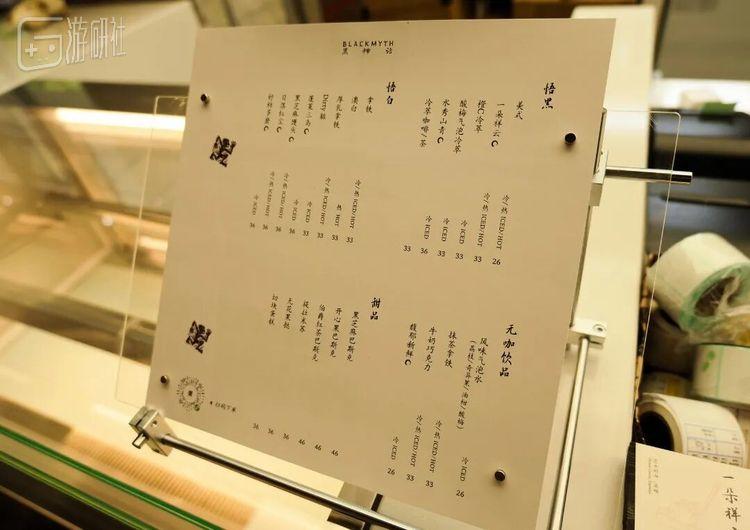 游研社
BLACKMYTH
黑神话
悟黑
美式 冷/热 ICED/HOT 26
一朵祥云 冷/热 ICED/HOT 33
橙C冷萃 冷 ICED 33
酸梅气泡冷萃 冷 ICED 33
水秀山青 冷 ICED 36
冷萃咖啡/茶 33
悟白
拿铁 冷/热 ICED/HOT 33
澳白 热 HOT 33
厚乳拿铁 冷/热 ICED/HOT 33
Dirty 脏 冷 ICED 33
蓬莱三岛 冷 ICED 36
黑芝麻馒头 冷/热 ICED/HOT 36
日落红尘 冷/热 ICED/HOT 36
冷 ICED 36
元咖饮品
风味气泡水 冷 ICED 26
(荔枝/奇异果/油柑/酸梅)
抹茶拿铁 冷/热 ICED/HOT 33
牛奶巧克力 冷/热 ICED/HOT 33
馥郁新鲜 冷 ICED 26
甜品
黑芝麻巴斯克 46
开心果巴斯克 46
伯爵红茶巴斯克 46
提拉米苏 36
无花果挞 36
切块蛋糕 36
扫码下单
一朵祥